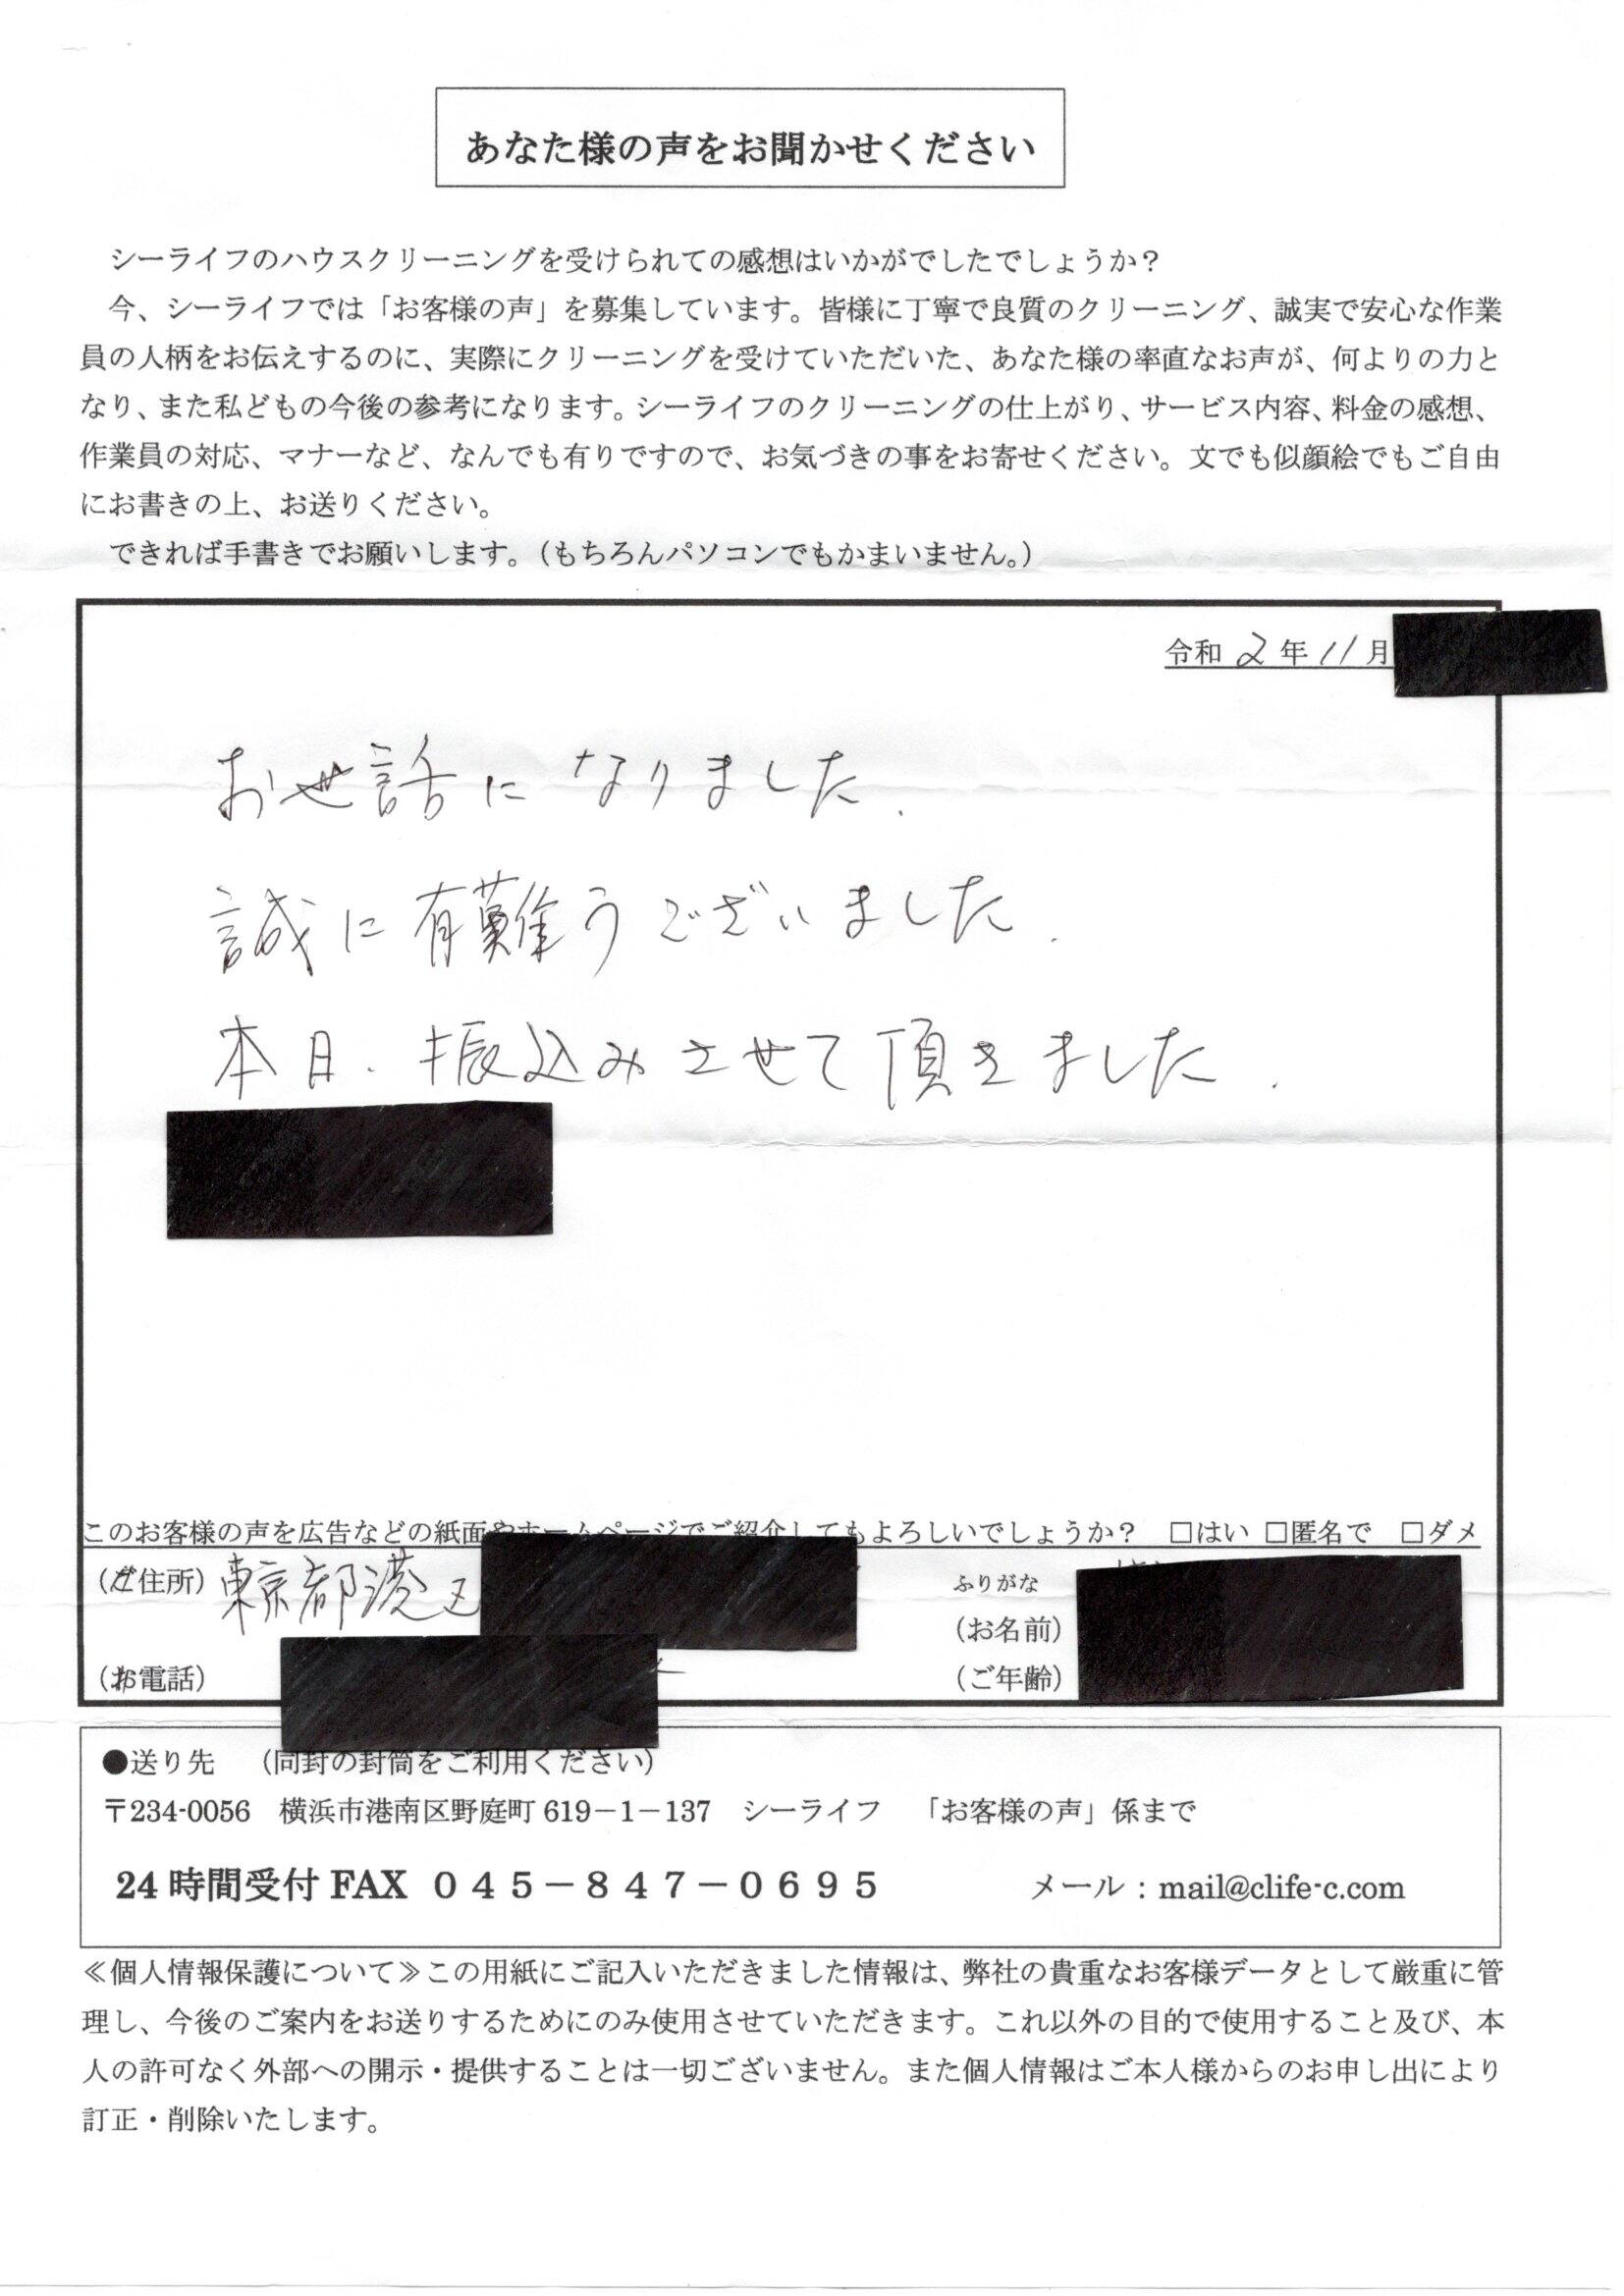 あなた様の声をお聞かせください
シーライフのハウスクリーニングを受けられての感想はいかがでしたでしょうか？
今、シーライフでは「お客様の声」を募集しています。皆様に丁寧で良質のクリーニング、誠実で安心な作業
員の人柄をお伝えするのに、実際にクリーニングを受けていただいた、あなた様の率直なお声が、何よりの力と
なり、また私どもの今後の参考になります。シーライフのクリーニングの仕上がり、サービス内容、料金の感想、
作業員の対応、マナーなど、なんでも有りですので、お気づきの事をお寄せください。文でも似顔絵でもご自由
にお書きの上、お送りください。
できれば手書きでお願いします。（もちろんパソコンでもかまいません。）
令和 2 年 11 月
お世話になりました.
誠に有難うございました.
本日. 振込みさせて頂きました.
このお客様の声を広告などの紙面やホームページでご紹介してもよろしいでしょうか？ □はい □匿名で □ダメ
（ご住所）東京都港区
ふりがな
（お名前）
（お電話）
（ご年齢）
●送り先 （同封の封筒をご利用ください）
〒234-0056 横浜市港南区野庭町 619－1－137 シーライフ 「お客様の声」係まで
24 時間受付 FAX ０４５－８４７－０６９５ メール：mail@clife-c.com
≪個人情報保護について≫この用紙にご記入いただきました情報は、弊社の貴重なお客様データとして厳重に管
理し、今後のご案内をお送りするためにのみ使用させていただきます。これ以外の目的で使用すること及び、本
人の許可なく外部への開示・提供することは一切ございません。また個人情報はご本人様からのお申し出により
訂正・削除いたします。